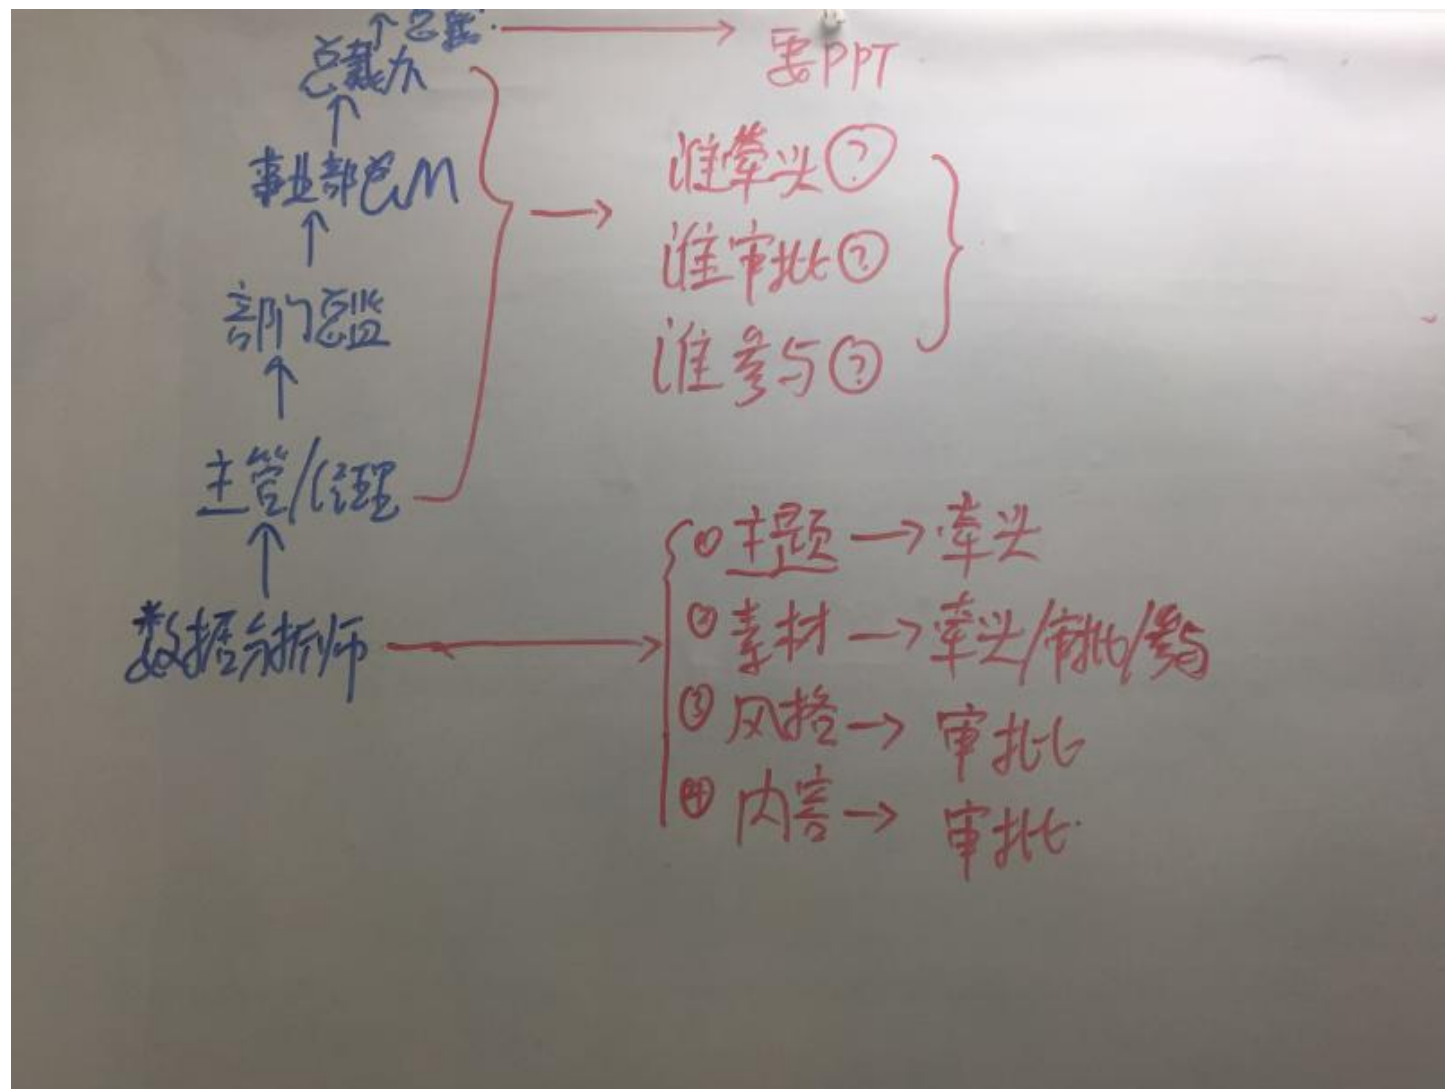 ↑总裁. → 要PPT
总裁办
↑
事业部总GM
↑
部门总监
↑
主管/经理
↑
数据分析师
→
谁牵头?
谁审批?
谁参与?
① 主题 → 牵头
② 素材 → 牵头/审批/参与
③ 风格 → 审批
④ 内容 → 审批